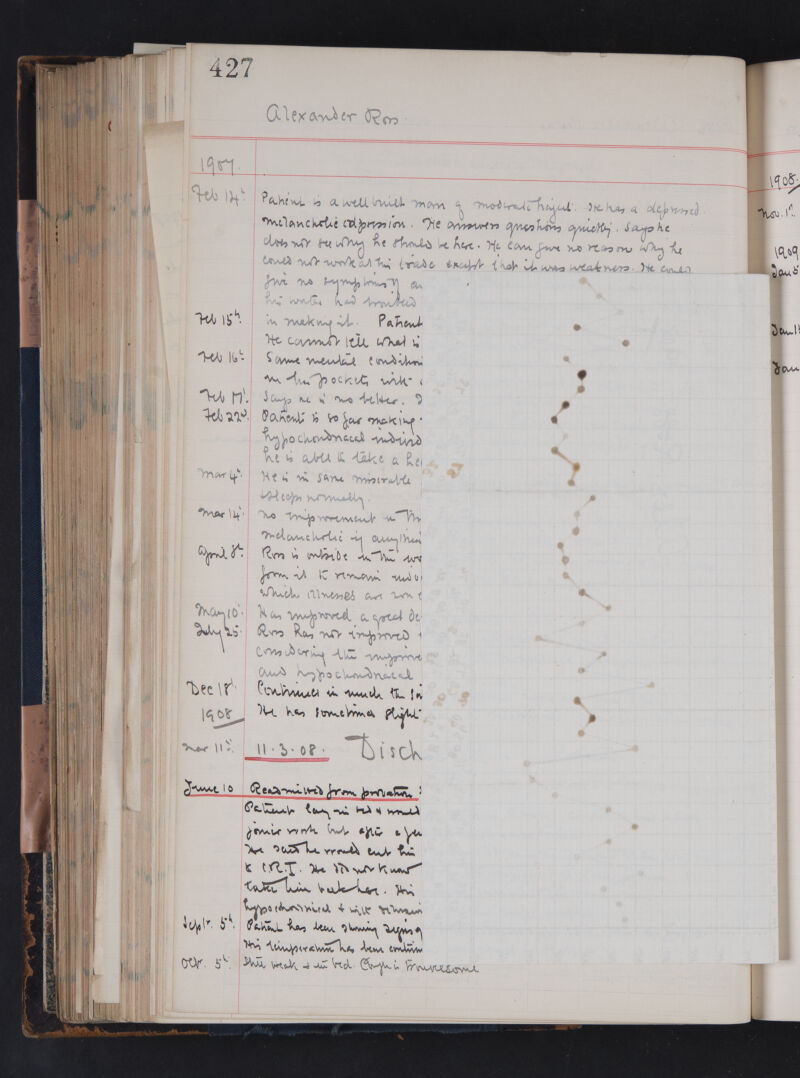 427
Alexander Ross
1907.
Feb 14th Patient is a well built man of moderate height. He has a depressed
melancholic expression. He answers questions quickly. Says he
does not see why he should be here. He can give no reason why he
could not work at his trade except that it was weakness. He could
give no symptoms of
his water had troubled
Feb 15th in making it. Patient
He cannot tell what is
Feb 16th Same mental condition
in his pockets with
Feb 17th Says he is no better.
Feb 22nd Patient is so far making
hypochondriacal
he is able to take a
Mar 4th He is in same miserable
sleeps normally.
Mar 14th no improvement in
melancholic if anything
April 8th Ross is outside in the
form it to remain
which illnesses are
May 10th Has improved a great
July 25 Ross has not improved
considering the
and hypochondriacal
Dec 18th Continues in much the
1908 He has sometimes slight
Mar 11th 11.3.08. Disch
June 10 Readmitted from probation
Patient lay in bed & would
work but after a few
He said he would cut his
to C.R.I. He did not know
take him back here. His
hypochondriacal & will remain
Sept. 5th Patient has been showing signs of
His temperature has been
Oct. 5th Still weak & in bed. Cough is troublesome
1908.
Nov. 1st
1909
Jan 5
Jan 1
Jan